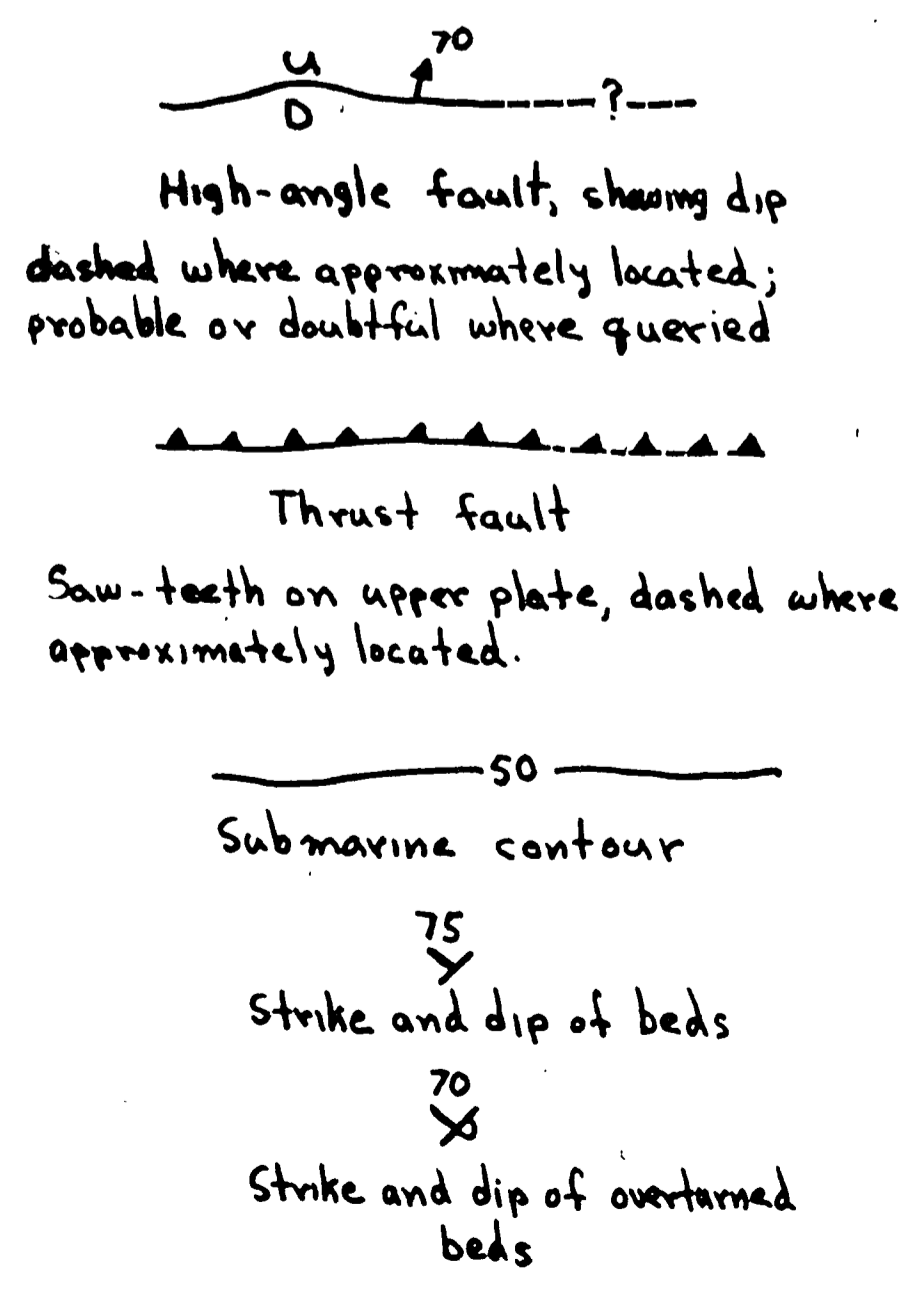 70
U
D
?
High-angle fault, showing dip
dashed where approximately located;
probable or doubtful where queried
Thrust fault
Saw-teeth on upper plate, dashed where
approximately located.
50
Submarine contour
75
Strike and dip of beds
70
Strike and dip of overturned
beds